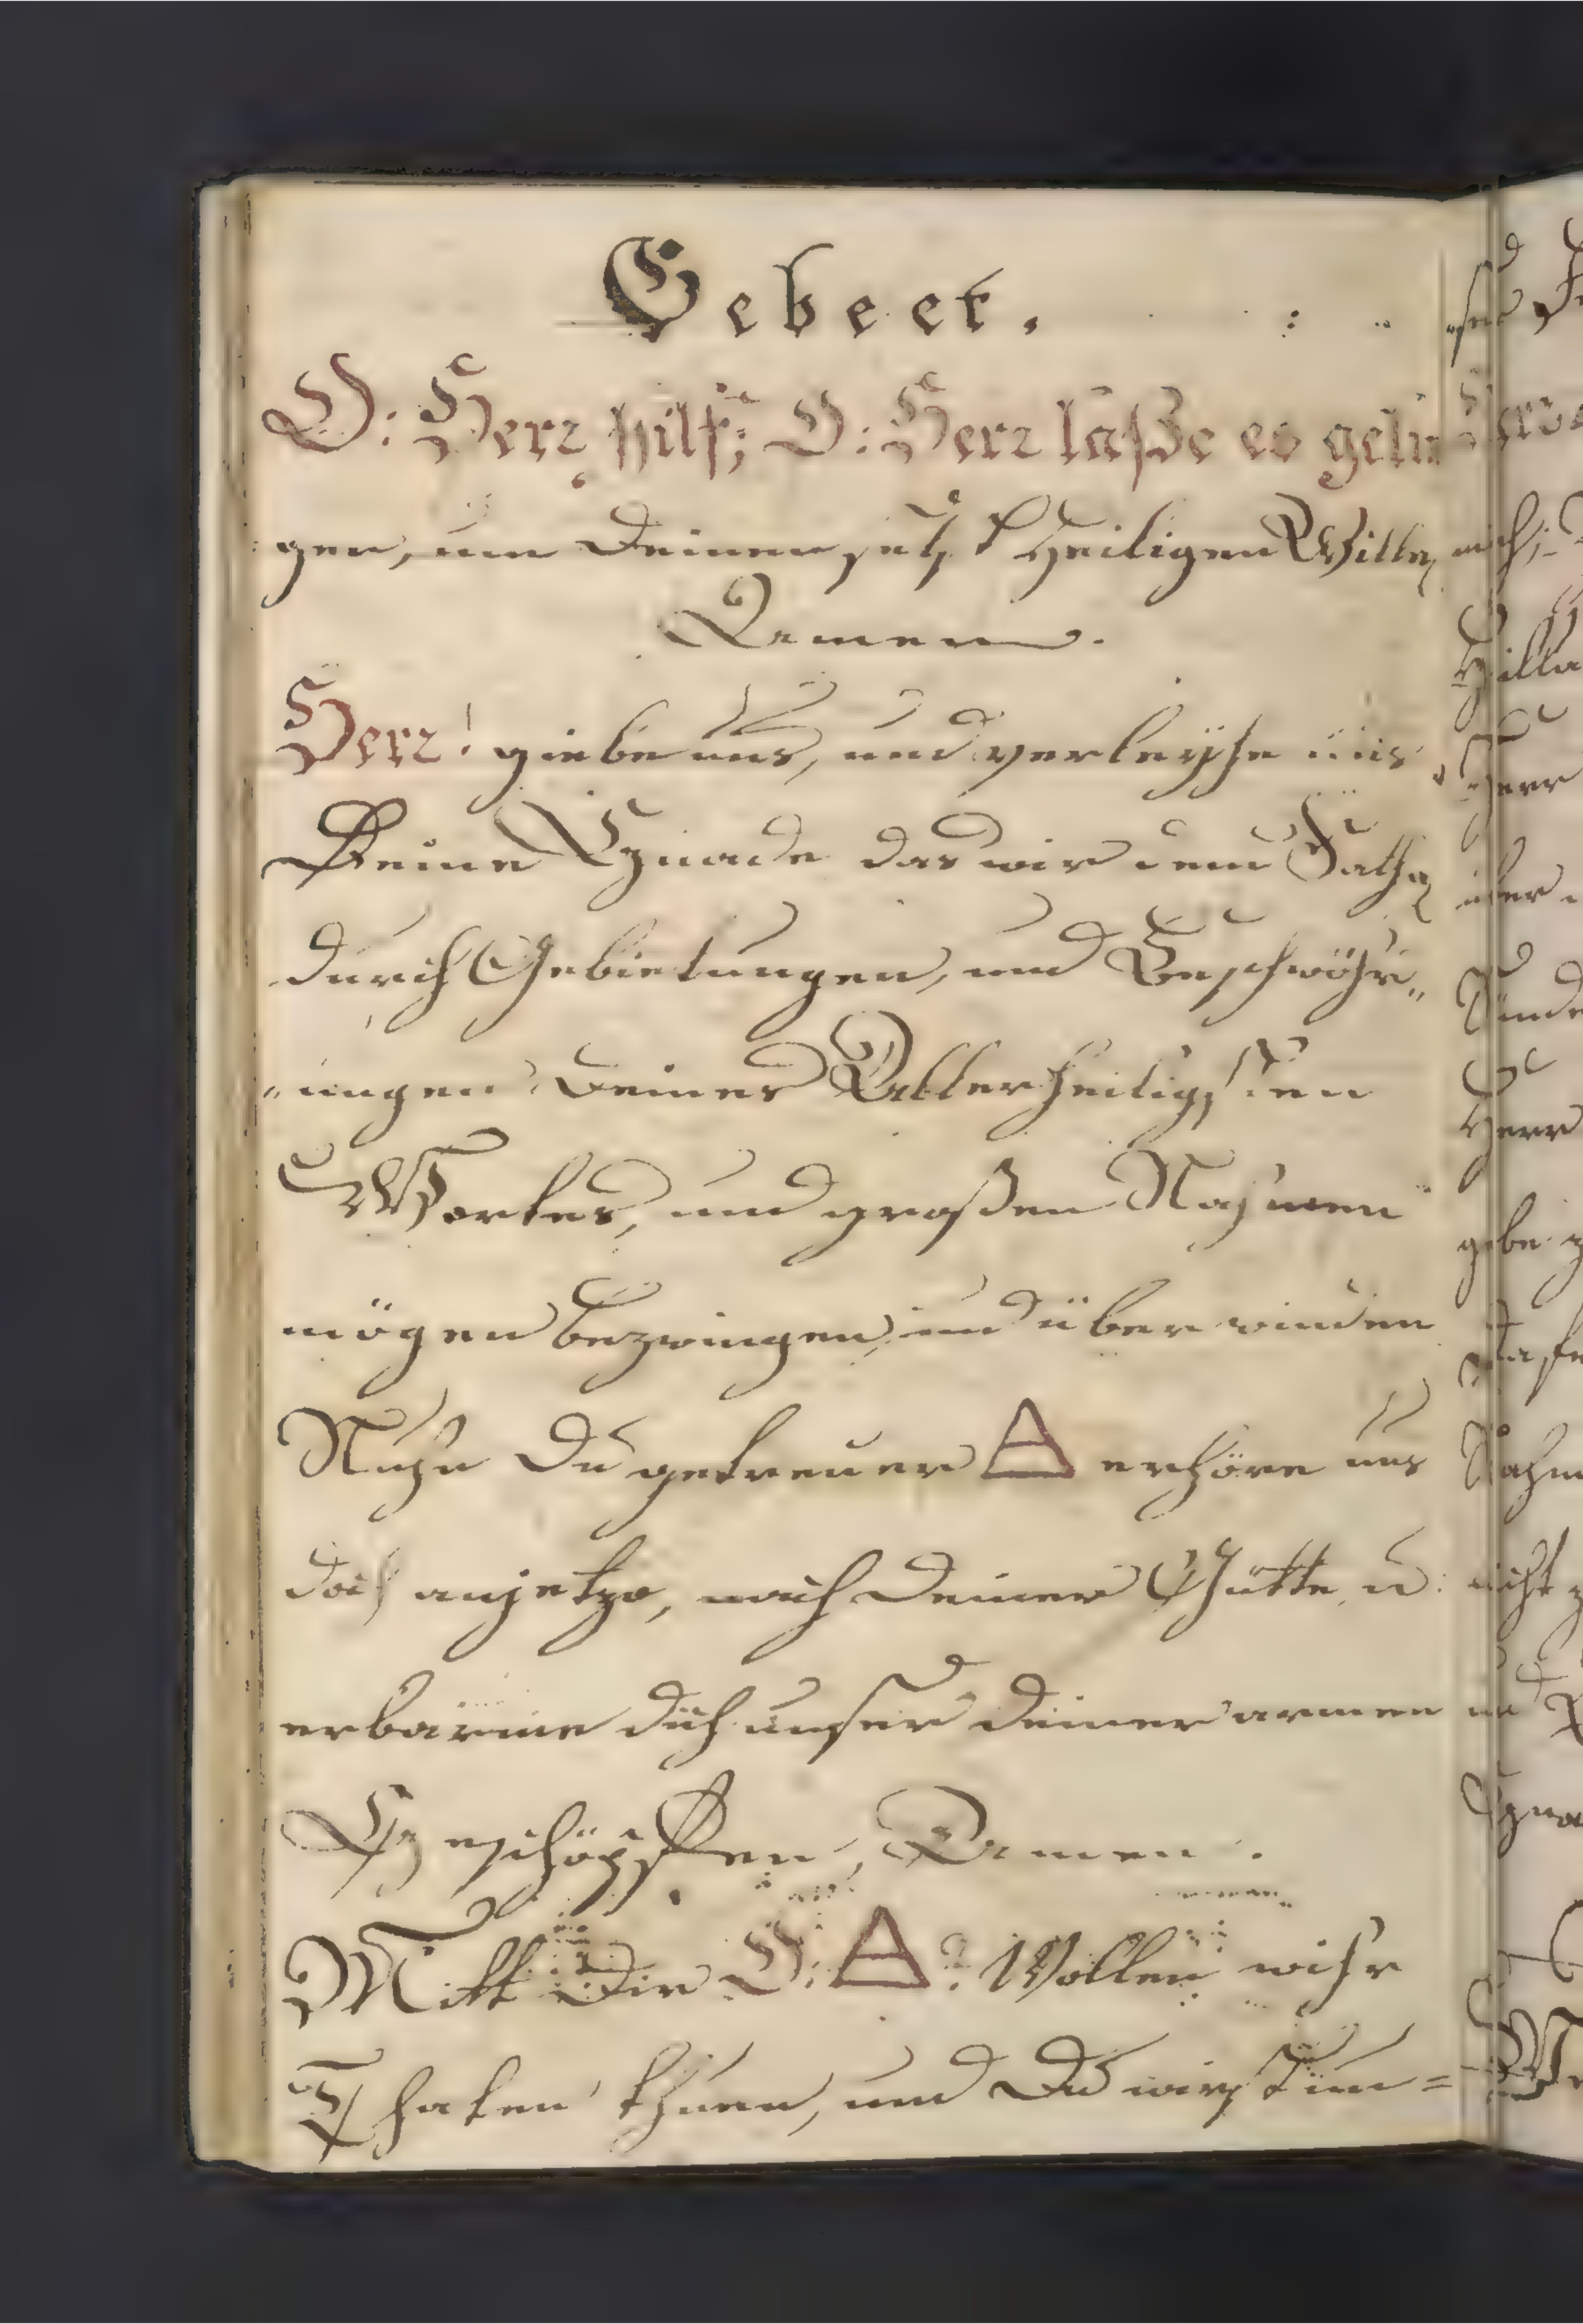 Gebeet.
O: Herr hilf; O: Herr laße es gelin
gen, um Deinen Heiligen Willen
Aamen.
Herr! giebe uns, und verleyhe uns
Deine Gnade das wir dem Sathan
durch Gebietungen, und Beschwöhr„
„ungen Deines Allerheiligsten
Wortes, und großen Nahmen
mögen bezwingen, und überwinden
Nuhn Du getreuer erhöre uns
doch anjetzo, nach Deiner Gütte, u:
erbarme dich unser deiner armen
Geschöpffen, Aamen.
Mitt Dir O: Wollen wihr
Thaten thuen, und Du wirst un=